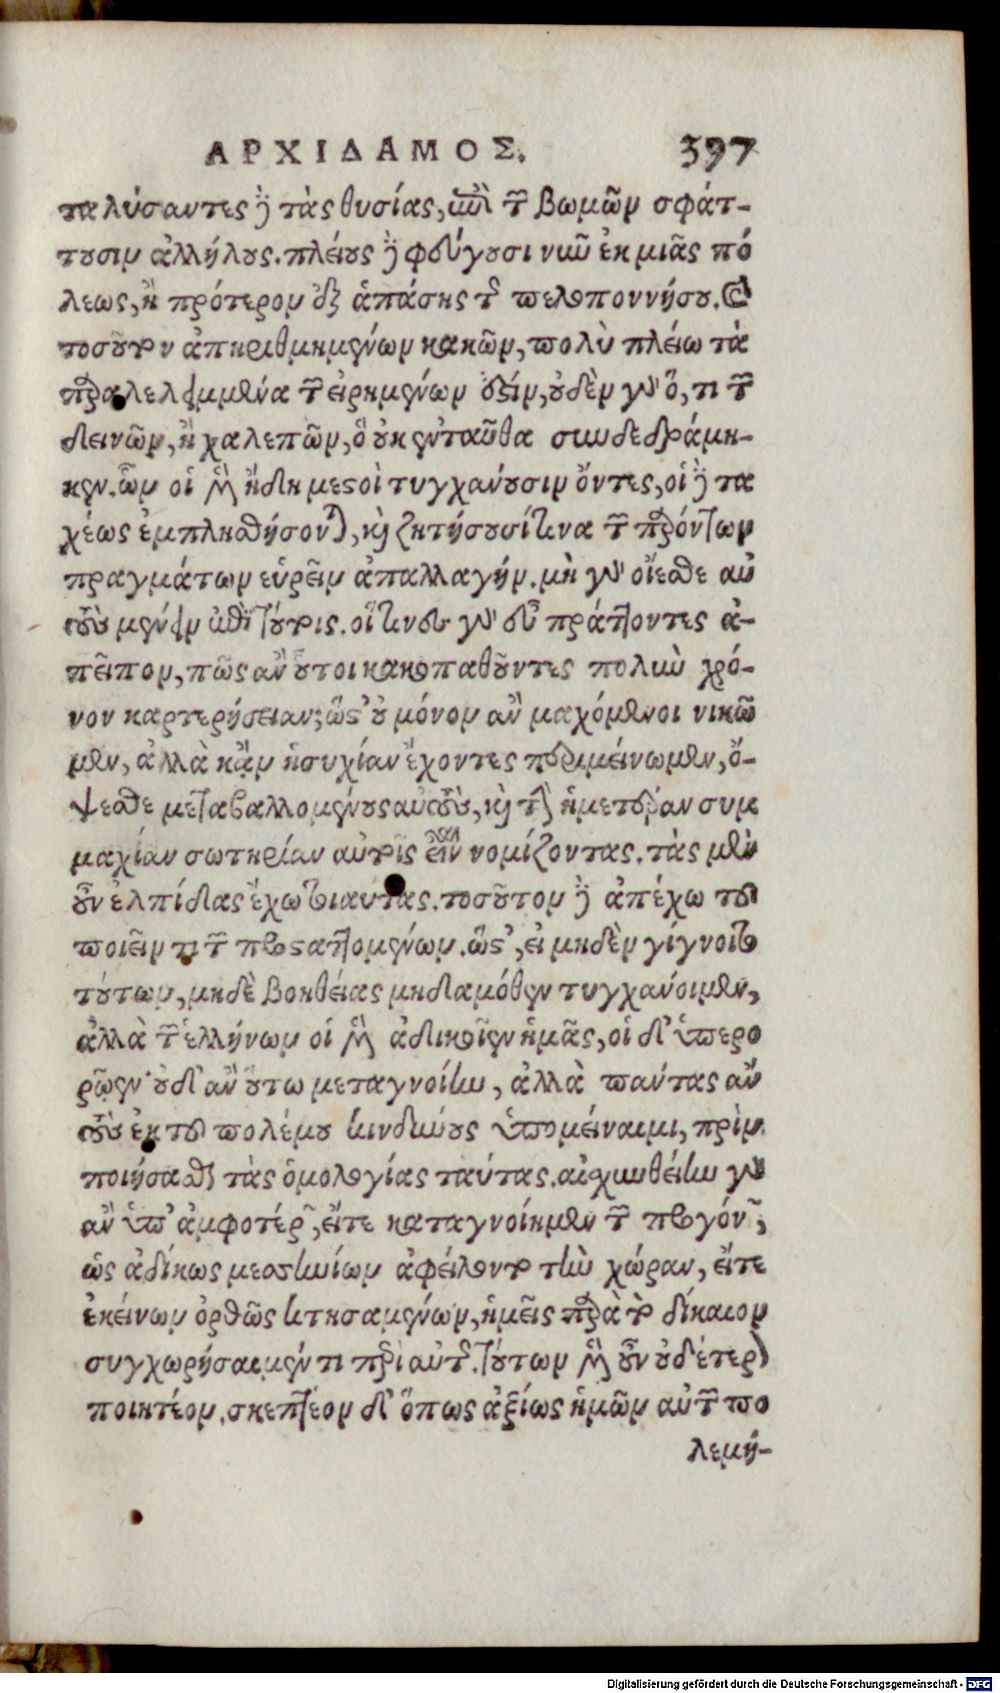 ΑΡΧΙΔΑΜΟΣ. 397
ταλύσαντες δὲ τὰς θυσίας, ἐπὶ τῶν βωμῶν σφάτ-
τουσιν ἀλλήλους. πλείους δὲ φεύγουσι νῦν ἐκ μιᾶς πό
λεως, ἢ πρότερον ἐξ ἁπάσης τῆς πελοποννήσου.
τοσούτων ἀπηριθμημένων κακῶν, πολὺ πλείω τὰ
παραλελειμμένα τῶν εἰρημένων ἐστίν, οὐδὲν γὰρ ὅ, τι τῶν
δεινῶν, ἢ χαλεπῶν, ὃ οὐκ ἐνταῦθα συνδεδράμη-
κεν. ὧν οἱ μὲν ἤδη μεστοὶ τυγχάνουσιν ὄντες, οἱ δὲ τα
χέως ἐμπλησθήσονται, καὶ ζητήσουσί τινα τῶν παρόντων
πραγμάτων εὑρεῖν ἀπαλλαγήν. μὴ γὰρ οἴεσθε αὐ
τοὺς μένειν ἐπὶ τούτοις. οἵτινες γὰρ εὖ πράττοντες ἀ-
πεῖπον, πῶς ἂν οὗτοι κακοπαθοῦντες πολὺν χρό-
νον καρτερήσειαν; ὥστ' οὐ μόνον ἂν μαχόμενοι νικῶ
μεν, ἀλλὰ κἂν ἡσυχίαν ἔχοντες περιμείνωμεν, ὄ-
ψεσθε μεταβαλλομένους αὐτοὺς, καὶ τὴν ἡμετέραν συμ
μαχίαν σωτηρίαν αὑτοῖς εἶναι νομίζοντας. τὰς μὲν
οὖν ἐλπίδας ἔχω τοιαύτας. τοσοῦτον δὲ ἀπέχω τοῦ
ποιεῖν τι τῶν προσταττομένων. ὥστ', εἰ μηδὲν γίγνοιτο
τούτων, μηδὲ βοηθείας μηδαμόθεν τυγχάνοιμεν,
ἀλλὰ τῶν ἑλλήνων οἱ μὲν ἀδικοῖεν ἡμᾶς, οἱ δ' ὑπερο
ρῷεν· οὐδ' ἂν οὕτω μεταγνοίην, ἀλλὰ πάντας ἂν
τοὺς ἐκ τοῦ πολέμου κινδύνους ὑπομείναιμι, πρὶν
ποιήσασθαι τὰς ὁμολογίας ταύτας. αἰσχυνθείην γὰρ
ἂν ὑπ' ἀμφοτέρων, εἴτε καταγνοίημεν τῶν προγόνων,
ὡς ἀδίκως μεσσηνίων ἀφείλοντο τὴν χώραν, εἴτε
ἐκείνων ὀρθῶς κτησαμένων, ἡμεῖς παρὰ τὸ δίκαιον
συγχωρήσαιμέν τι περὶ αὐτῆς. τούτων μὲν οὖν οὐδέτερον
ποιητέον, σκεπτέον δ' ὅπως ἀξίως ἡμῶν αὐτῶν πο
λεμή-
Digitalisierung gefördert durch die Deutsche Forschungsgemeinschaft - DFG